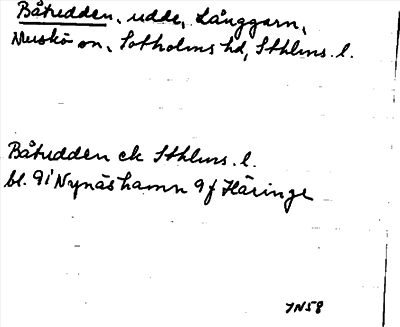 Båtudden, udde, Långgarn,
Muskö sn, Sotholms hd, Sthlms. l.
Båtudden ek Sthlms. l.
bl. 9i Nynäshamn 9f Häringe
IN58